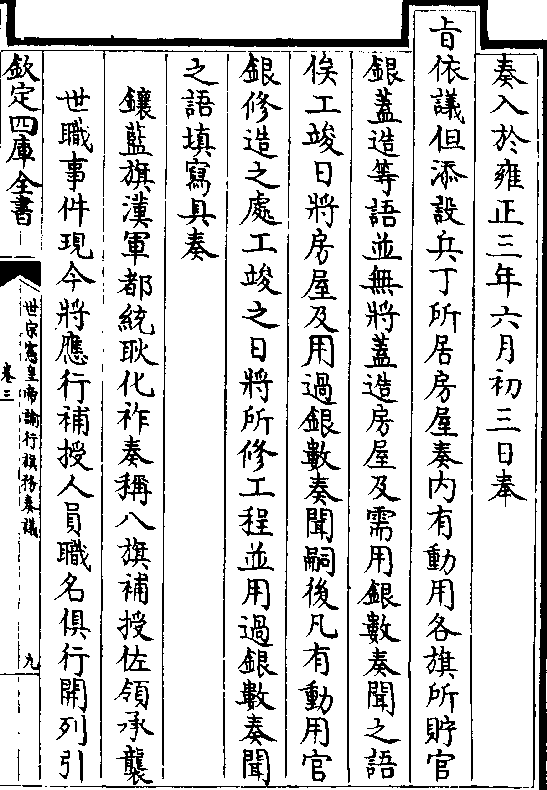 奏入於雍正三年六月初三日奉
旨依議但添設兵丁所居房屋奏内有動用各旗所貯官
銀蓋造等語並無將蓋造房屋及需用銀數奏聞之語
俟工竣日將房屋及用過銀數奏聞嗣後凡有動用官
銀修造之處工竣之日將所修工程並用過銀數奏聞
之語填寫具奏
鑲藍旗漢軍都統耿化祚奏稱八旗補授佐領承襲
世職事件現今將應行補授人員職名俱行開列引
欽定四庫全書
世宗憲皇帝諭行旗務奏議
卷三
九